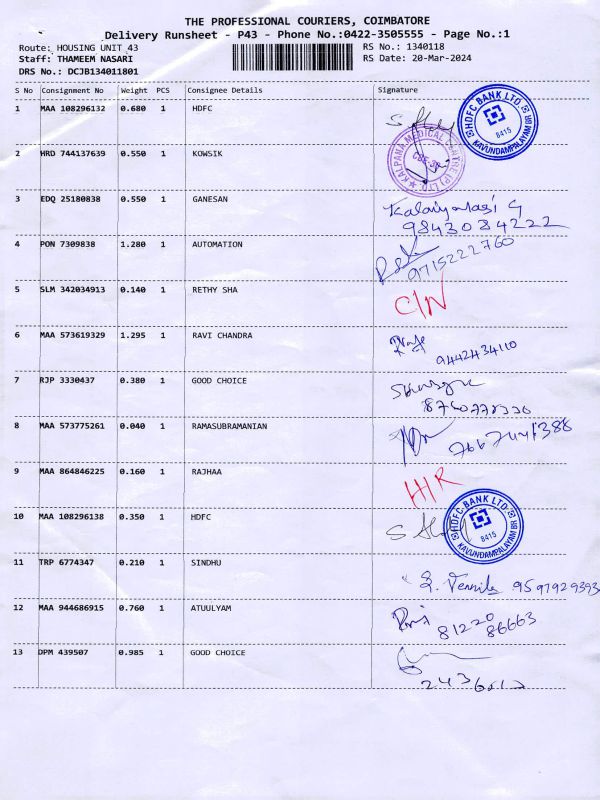 THE PROFESSIONAL COURIERS, COIMBATORE
Delivery Runsheet - P43 - Phone No.:0422-3505555 - Page No.:1
Route: HOUSING UNIT 43
RS No.: 1340118
Staff: THAMEEM NASARI
RS Date: 20-Mar-2024
DRS No.: DCJB134011801
S No Consignment No Weight PCS Consignee Details Signature
1 MAA 108296132 0.680 1 HDFC
HDFC BANK LTD. 8415 KAVUNDAMPALAYAM BR
KALPANA MEDICAL CENTRE (P) LTD.
2 HRD 744137639 0.550 1 KOWSIK
3 EDQ 25180838 0.550 1 GANESAN
9843084222
4 PON 7309838 1.280 1 AUTOMATION
9715222760
5 SLM 342034913 0.140 1 RETHY SHA C/N
6 MAA 573619329 1.295 1 RAVI CHANDRA
9442434110
7 RJP 3330437 0.380 1 GOOD CHOICE
8 MAA 573775261 0.040 1 RAMASUBRAMANIAN
9 MAA 864846225 0.160 1 RAJHAA H/R
10 MAA 108296138 0.350 1 HDFC
HDFC BANK LTD. 8415 KAVUNDAMPALAYAM BR
11 TRP 6774347 0.210 1 SINDHU
9597929393
12 MAA 944686915 0.760 1 ATUULYAM
81220
86663
13 DPM 439507 0.985 1 GOOD CHOICE